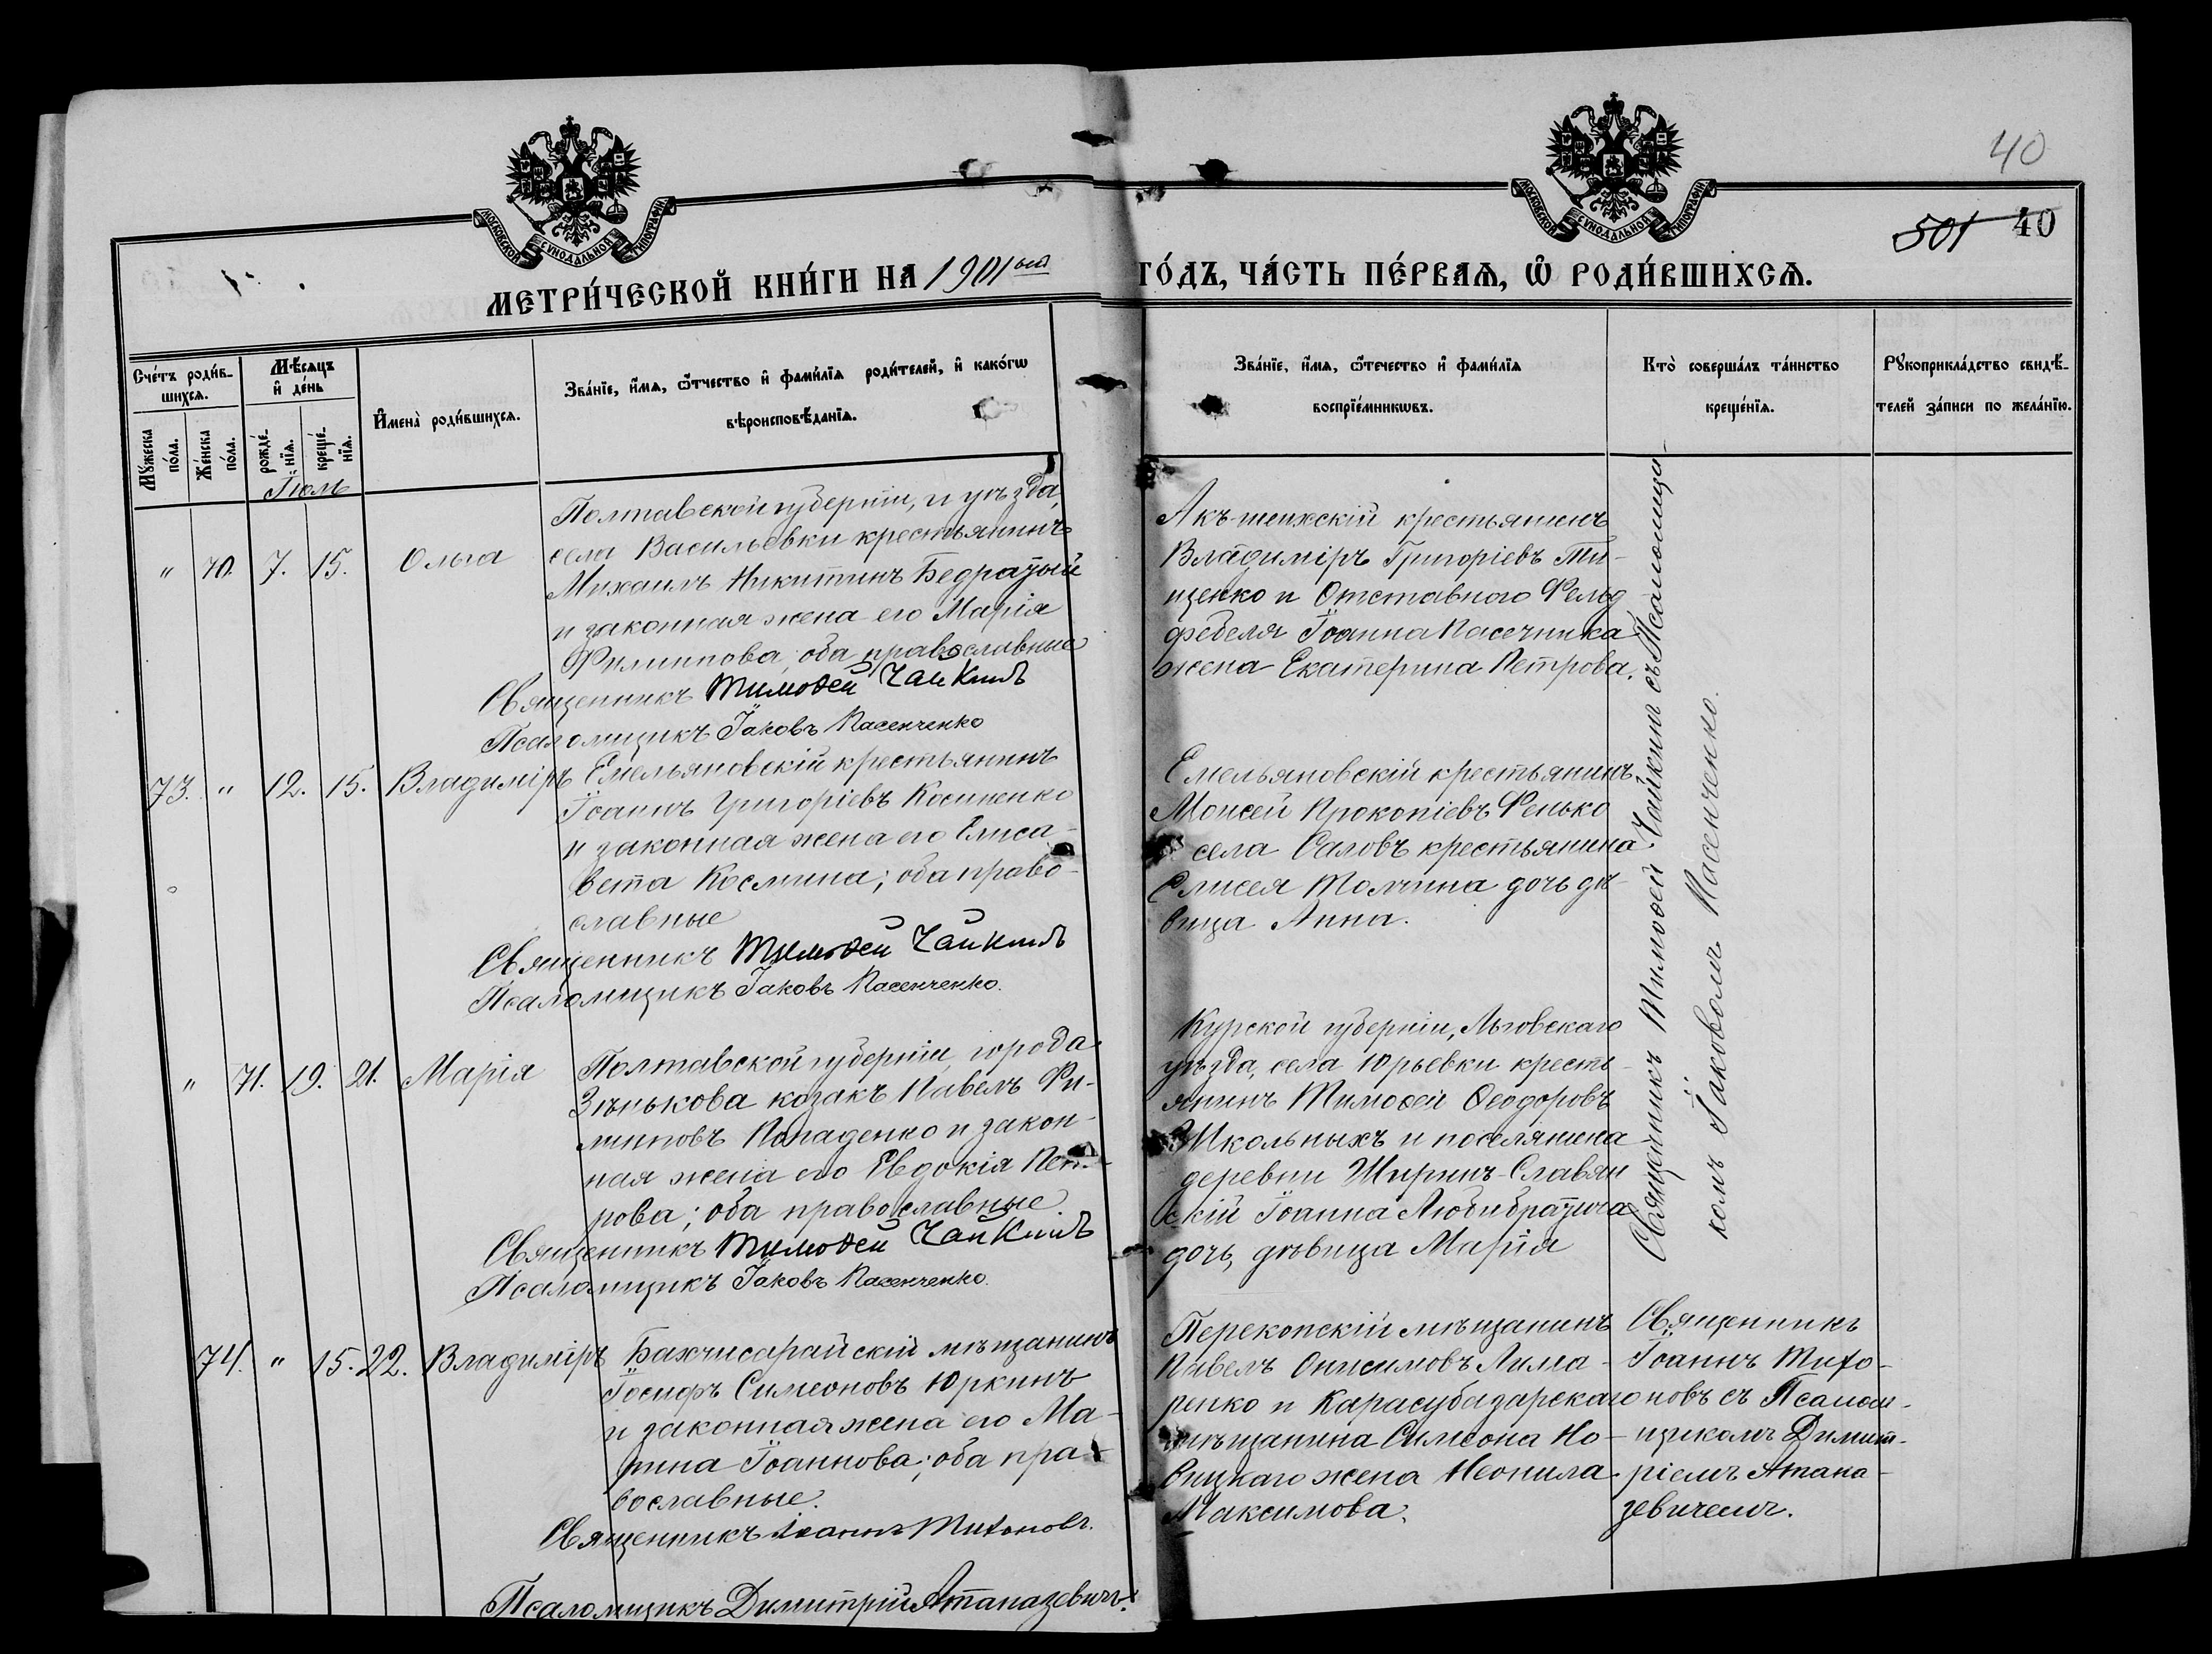 40
501 40
МОСКОВСКОЙ СѴНОДАЛЬНОЙ ТИПОГРАФІИ
МОСКОВСКОЙ СѴНОДАЛЬНОЙ ТИПОГРАФІИ
МЕТРИ́ЧЕСКОЙ КНИ́ГИ НА 1901ый ГО́ДЪ, ЧА́СТЬ ПЕ́РВАѦ, Ѡ҆ РОДИ́ВШИХСѦ.
Сче́тъ роди́в-
шихсѧ.
Мꙋ́жеска по́ла.
Же́нска по́ла.
Мѣ́сѧцъ
и҆ де́нь
рожде́-нїѧ.
креще́-нїѧ.
И҆мена̀ роди́вшихсѧ.
Зва́нїе, и҆́мѧ, ѻ҆́тчество и҆ фами́лїѧ роди́телей, и҆ како́гѡ
вѣроисповѣ́данїѧ.
Зва́нїе, и҆́мѧ, ѻ҆те́чество и҆ фами́лїѧ
воспрїе́мникѡвъ.
Кто̀ соверша́лъ та́инство
креще́нїѧ.
Рꙋкоприкла́дство свидѣ́-
телей за́писи по жела́нїю.
Іюль
" 70. 7. 15. Ольга
Полтавской губерніи, и уѣзда,
села Васильевки крестьянинъ
Михаилъ Никитинъ Бедратый
и законная жена его Марія
Филиппова; оба православные
Священникъ Тимоѳей Чайкинъ
Псаломщикъ Іаковъ Пасенченко
Акъ-шеихскій крестьянинъ
Владиміръ Григоріевъ Ти-
щенко и Отставного Фельд
фебеля Іоанна Пасечника
жена Екатерина Петрова.
73. " 12. 15. Владиміръ
Емельяновскій крестьянинъ
Іоаннъ Григоріевъ Косиненко
и законная жена его Елиса-
вета Космина; оба право-
славные
Священникъ Тимоѳей Чайкинъ
Псаломщикъ Іаковъ Пасенченко.
Емельяновскій крестьянинъ
Моисей Прокопіевъ Фенько
села Саловъ крестьянина
Елисея Толчина дочь дѣ-
вица Анна.
" 71. 19. 21. Марія
Полтавской губерніи, города
Зѣнькова козакъ Павелъ Фи-
липповъ Попаденко и закон-
ная жена его Евдокія Пет-
рова; оба православные.
Священникъ Тимоѳей Чайкинъ
Псаломщикъ Іаковъ Пасенченко.
Курской губерніи, Льговскаго
уѣзда, села Юрьевки кресть-
янинъ Тимоѳей Ѳеодоровъ
Школьныхъ и поселянина
деревни Ширинъ-Славян
скій Іоанна Любибратича
дочь, дѣвица Марія
Священникъ Тимоѳей Чайкинъ съ Псаломщи-
комъ Іаковомъ Пасенченко.
74. " 15. 22. Владиміръ
Бахчисарайскій мѣщанинъ
Іосифъ Симеоновъ Юркинъ
и законная жена его Ма-
рина Іоаннова; оба пра-
вославные.
Священникъ Іоаннъ Тихоновъ.
Псаломщикъ Димитрій Атаназевичъ.
Перекопскій мѣщанинъ
Павелъ Онисимовъ Лима-
ренко и Карасубазарскаго
мѣщанина Симеона Но-
вицкаго жена Неонила
Максимова.
Священникъ
Іоаннъ Тихо-
новъ съ Псалом-
щикомъ Димит-
ріемъ Атана-
зевичемъ.